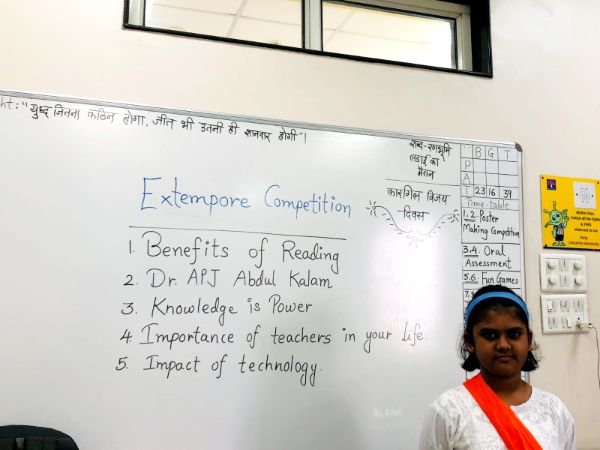 ht: "युध्द जितना कठिन होगा, जीत भी उतनी ही शानदार होगी"।
Extempore Competition
1. Benefits of Reading
2. Dr. APJ Abdul Kalam
3. Knowledge is Power
4. Importance of teachers in your life.
5. Impact of technology.
शब्द-रणभूमि
लडाई का
मैदान
कारगिल विजय
दिवस
B G T
P
A
T 23 16 39
Time-table
1.2 Poster
Making Competition
3.4. Oral
Assessment
5.6. Fun Games
BLANK